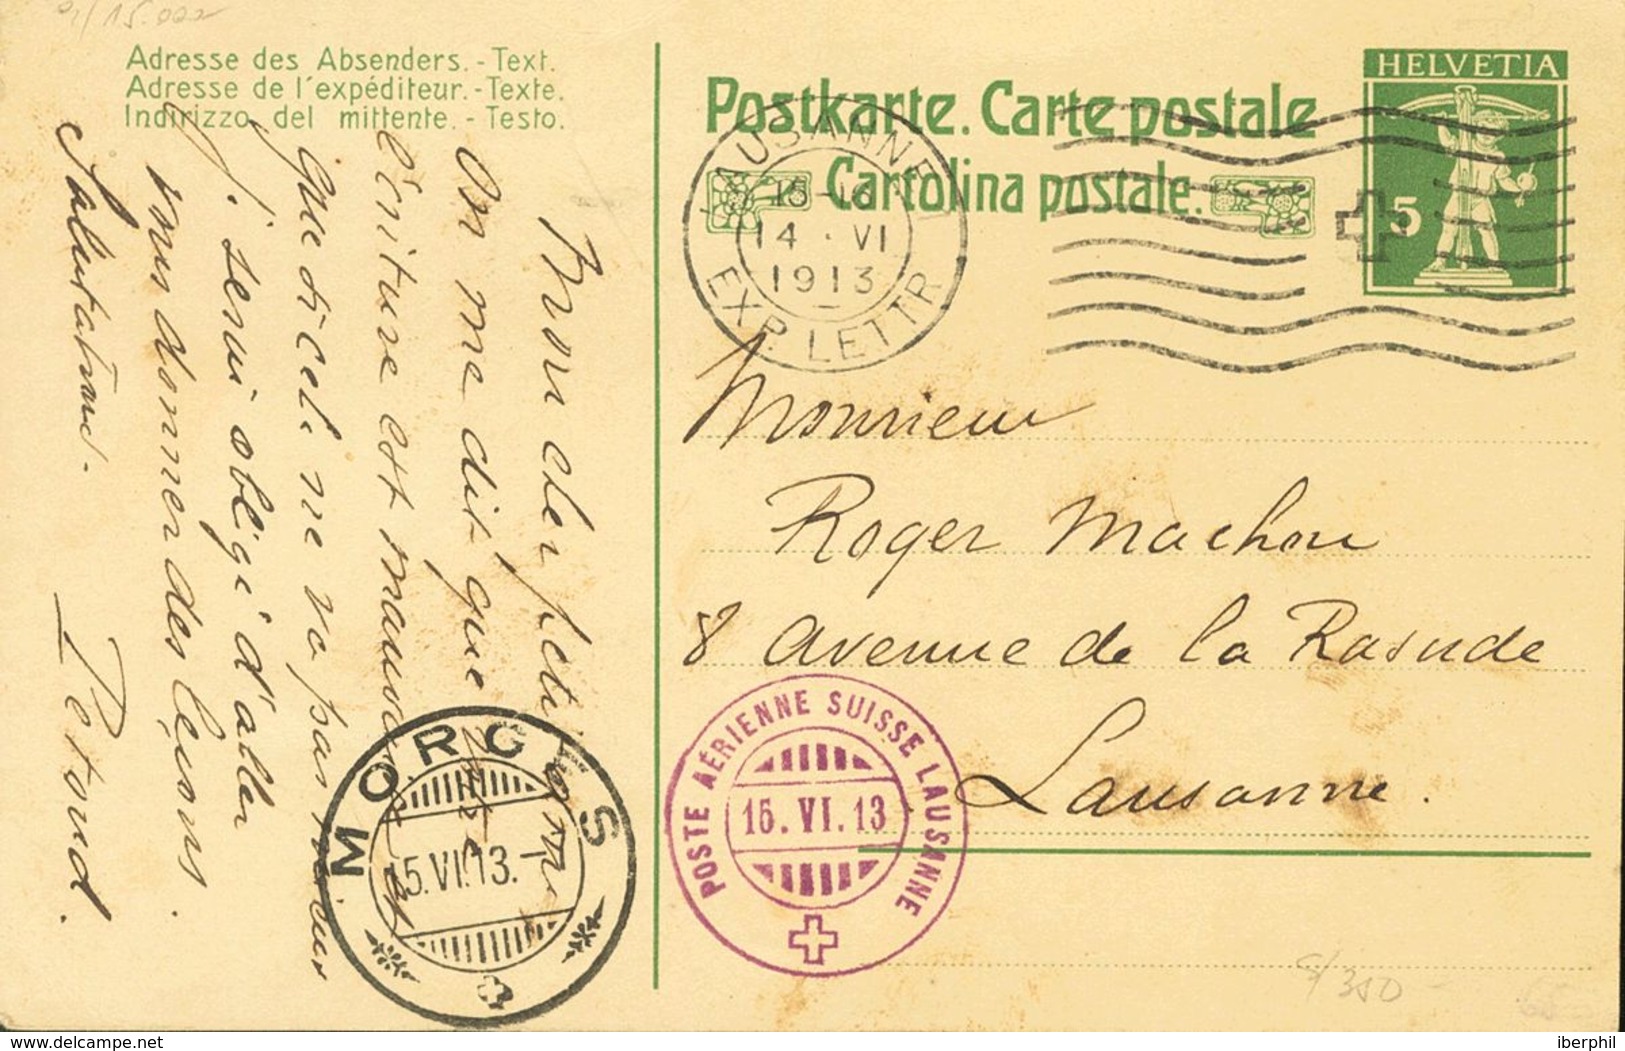 Adresse des Absenders. - Text.
Adresse de l'expéditeur. - Texte.
Indirizzo del mittente. - Testo.
Postkarte. Carte postale
Cartolina postale.
HELVETIA
5
LAUSANNE
15-16
14 · VI
1913
EXP. LETTR
Mon cher petit
On me dit que
l'écriture est mauvaise et
que si cela ne va pas mieux
j. serai obligé d'aller
vous donner des leçons.
Salutations.
Petoud.
Monsieur
Roger Machon
8 Avenue de la Rasude
Lausanne.
MORGES
15.VI.13.-
POSTE AÉRIENNE SUISSE LAUSANNE
15. VI. 13
iberphil